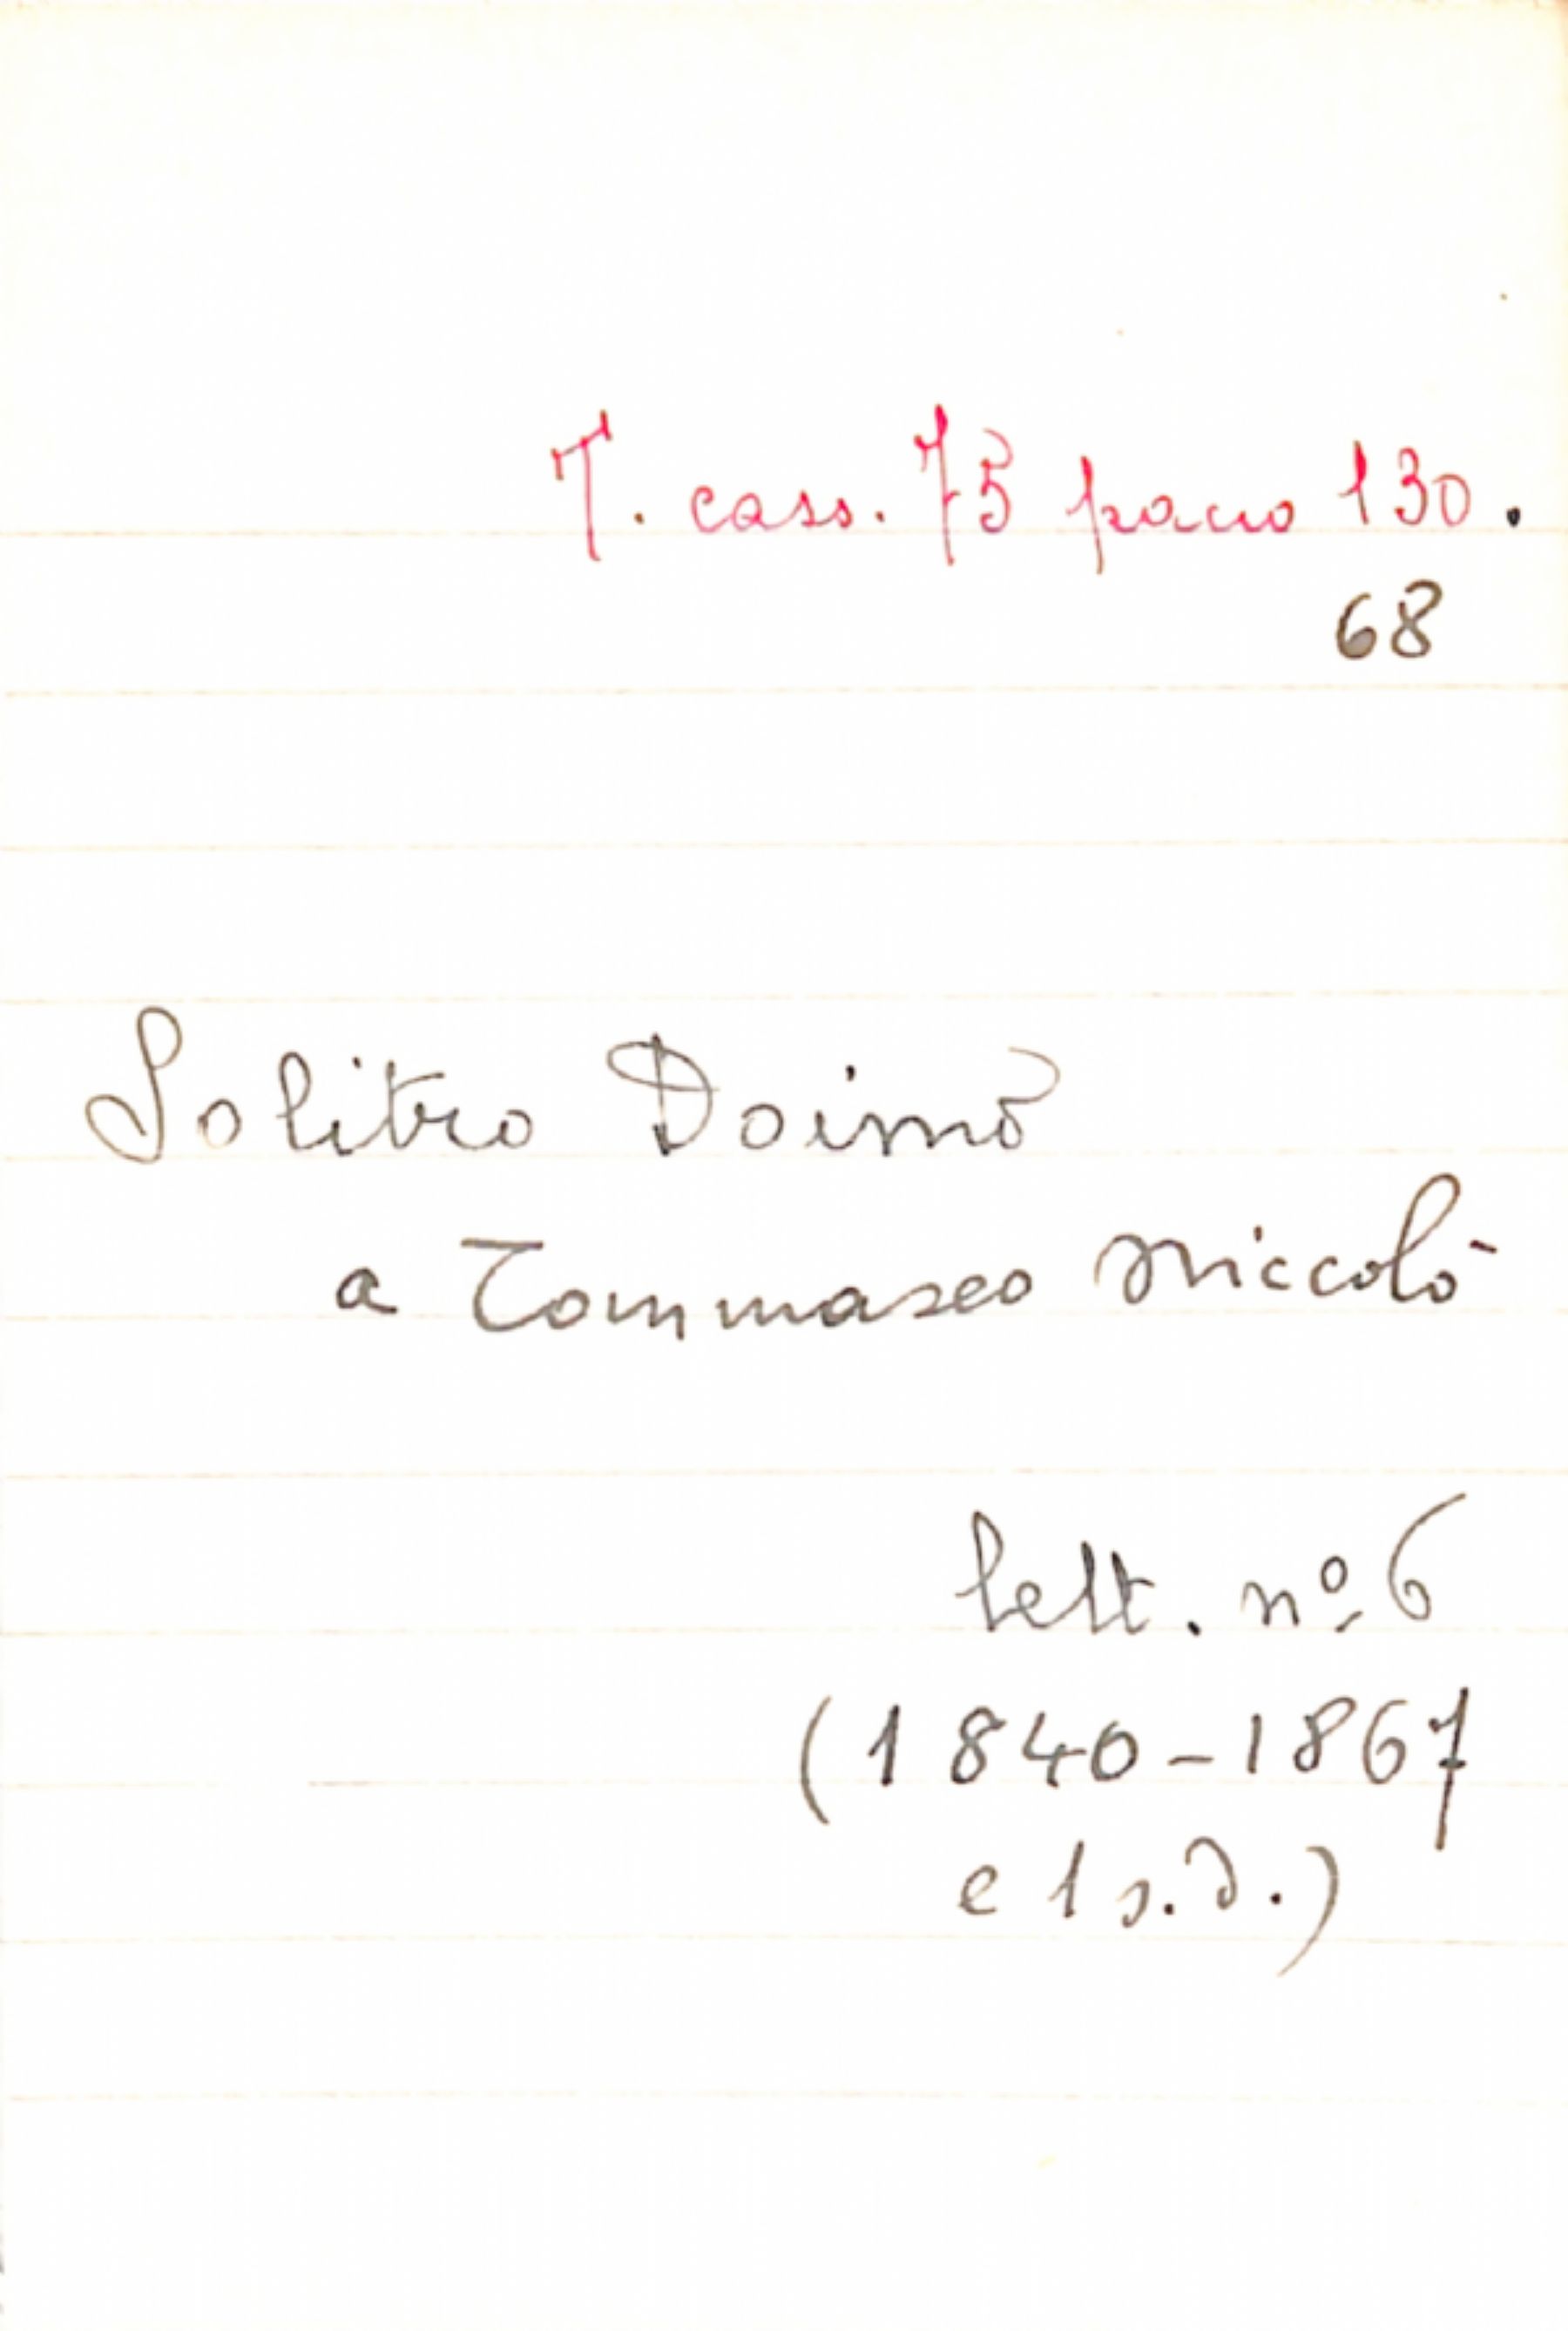 T. cass. 75 pacco 130.
68
Solitro Doimo
a Tommaseo Niccolò
lett. nº 6
(1840-1867
e 1 s.d.)